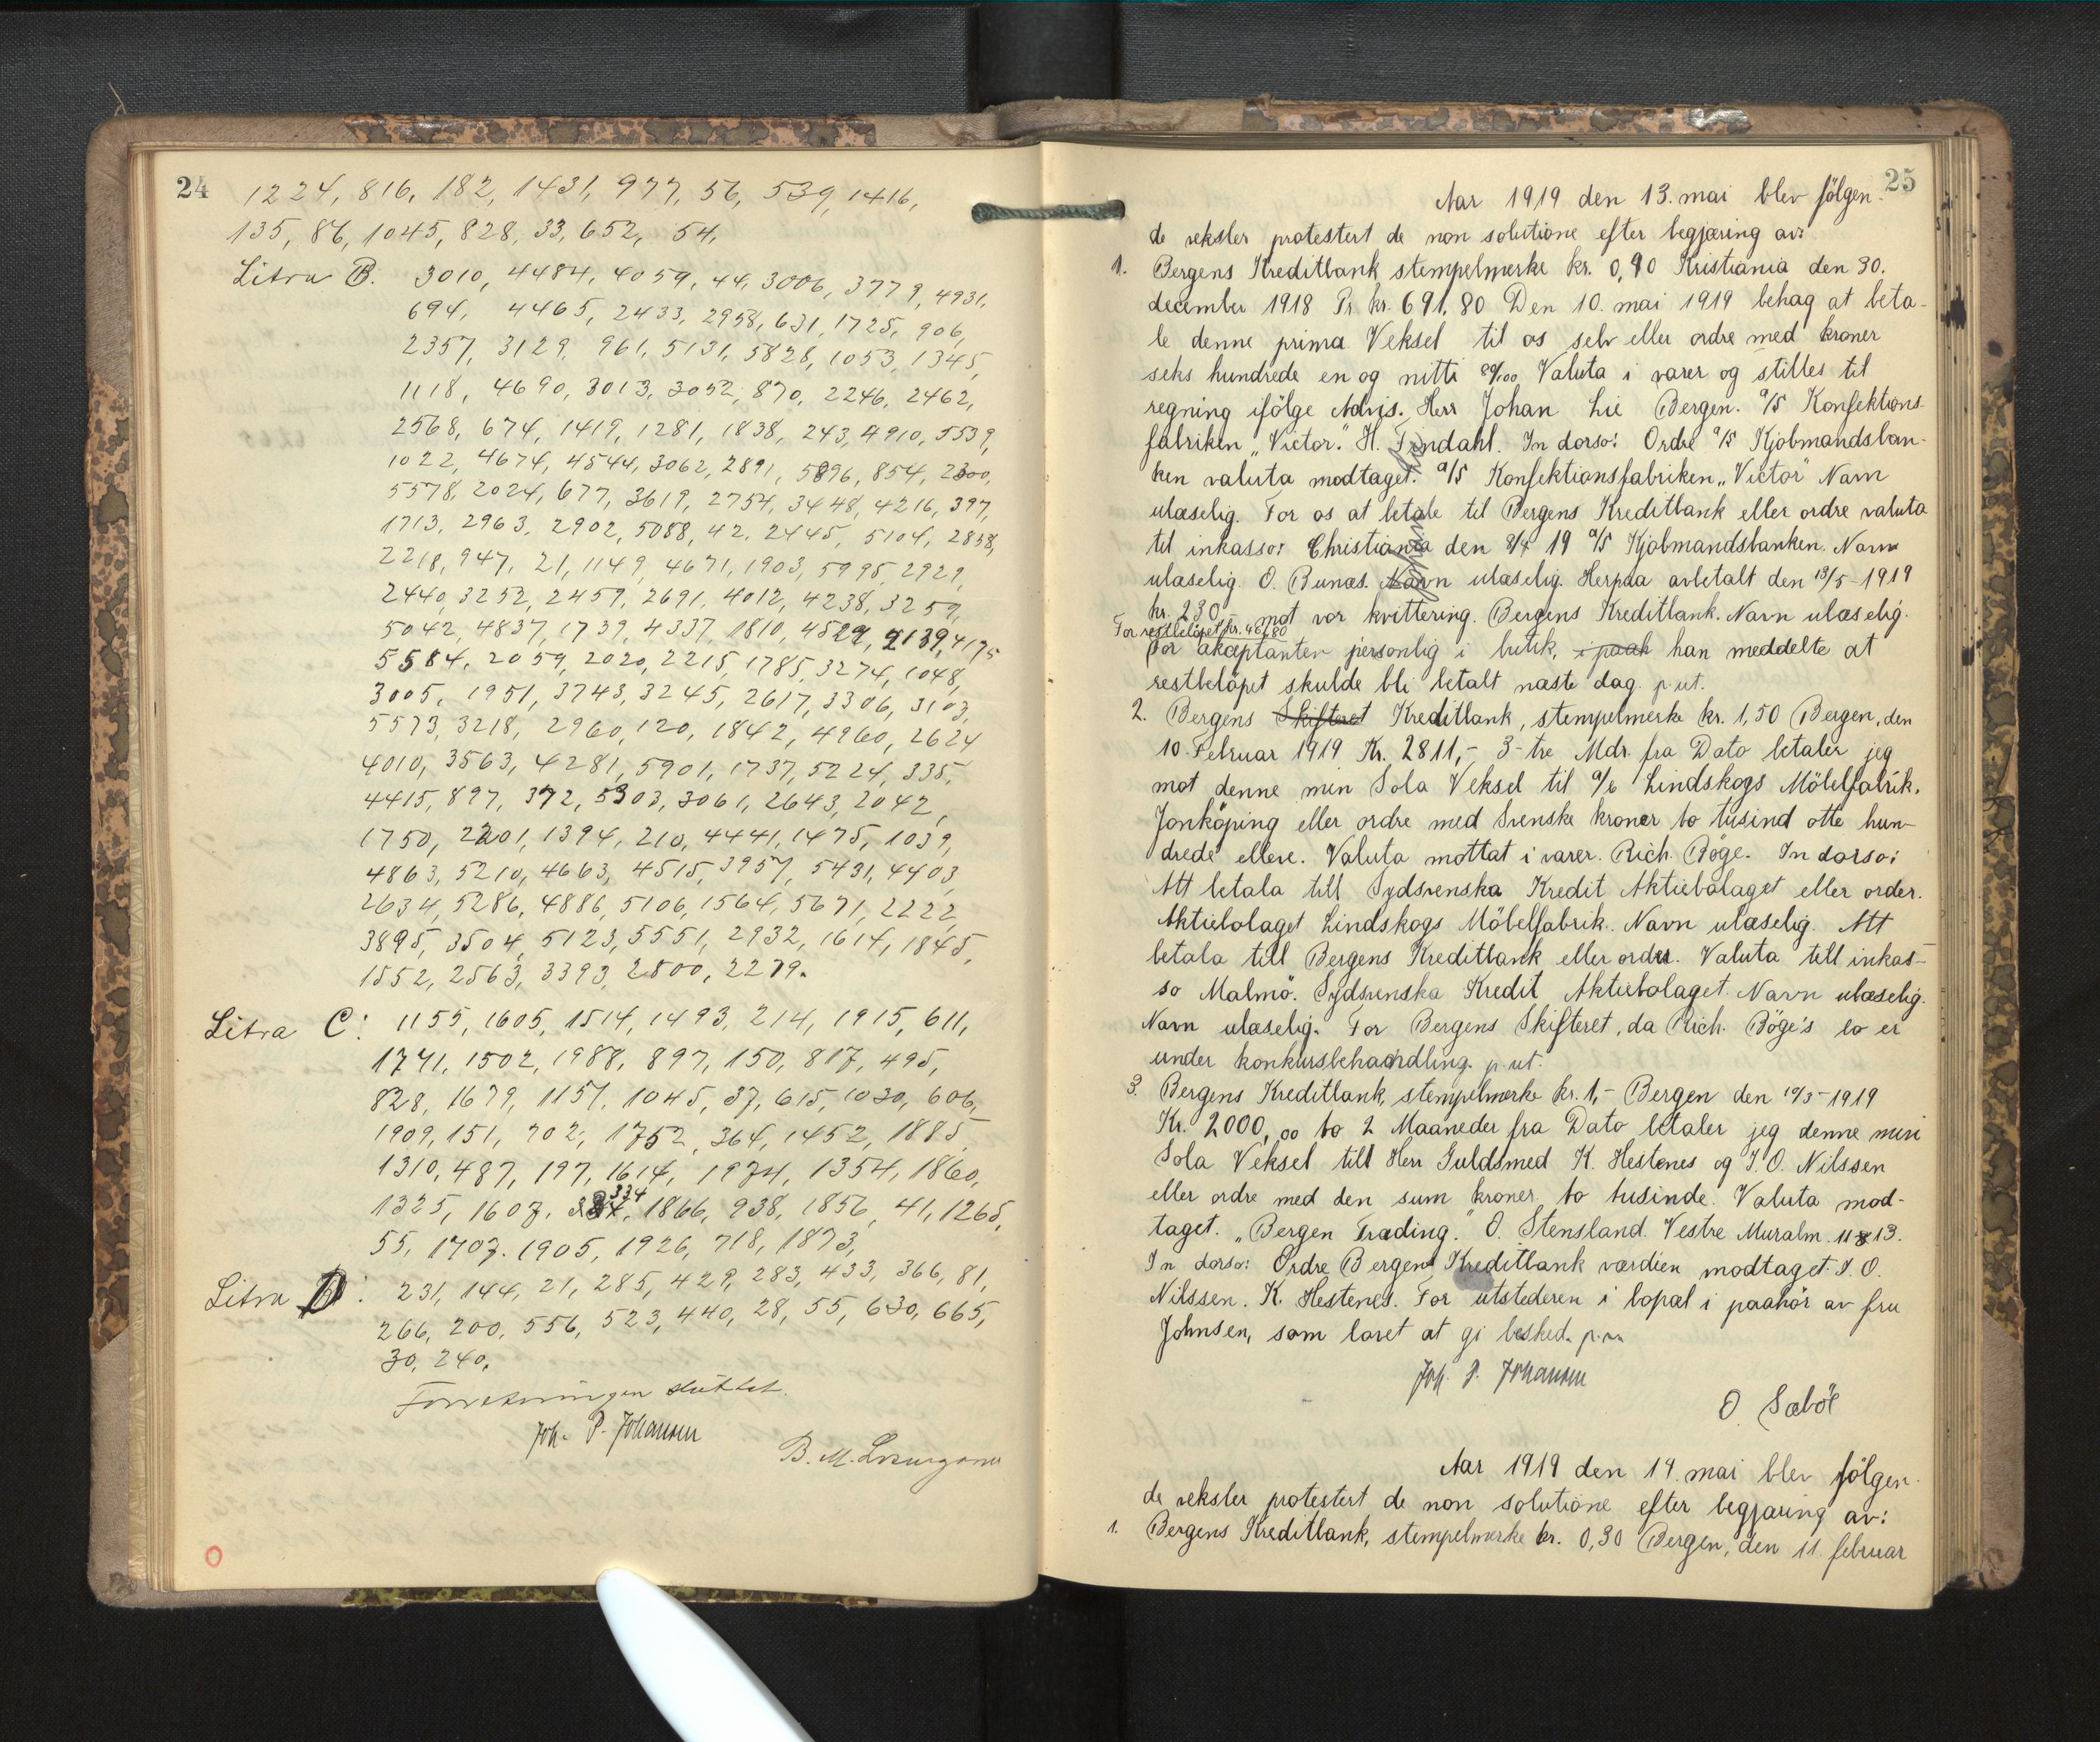 24
1224, 816, 182, 1431, 977, 56, 539, 1416,
135, 86, 1045, 828, 33, 652, 54,
Litra B. 3010, 4484, 4059, 44, 3006, 3779, 4931,
694, 4465, 2433, 2958, 631, 1725, 906,
2357, 3129, 961, 5131, 5828, 1053, 1345,
1118, 4690, 3013, 3052, 870, 2246, 2462,
2568, 674, 1419, 1281, 1838, 243, 4910, 5539,
1022, 4674, 4544, 3062, 2891, 5896, 854, 2300,
5578, 2024, 677, 3619, 2754, 3448, 4216, 397,
1713, 2963, 2902, 5088, 42, 2445, 5104, 2838,
2218, 947, 21, 1149, 4671, 1903, 5995, 2929,
2440, 3252, 2459, 2691, 4012, 4238, 3259,
5042, 4837, 1739, 4337, 1810, 4529, 2139, 4175
5584, 2059, 2020, 2215, 1785, 3274, 1048,
3005, 1951, 3743, 3245, 2617, 3306, 3103,
5573, 3218, 2960, 120, 1842, 4960, 2624
4010, 3563, 4281, 5901, 1737, 5224, 335,
4415, 897, 372, 5303, 3061, 2643, 2042,
1750, 2201, 1394, 210, 4441, 1475, 1039,
4863, 5210, 4663, 4515, 3957, 5431, 4403,
2634, 5286, 4886, 5106, 1564, 5671, 2222,
3895, 3504, 5123, 5551, 2932, 1614, 1845,
1552, 2563, 3393, 2800, 2279.
Litra C: 1155, 1605, 1514, 1493, 214, 1915, 611,
1741, 1502, 1988, 897, 150, 817, 495,
828, 1679, 1157, 1045, 37, 615, 1030, 606,
1909, 151, 702, 1752, 364, 1452, 1885,
1310, 487, 197, 1614, 1974, 1354, 1860,
1325, 1607, 334, 1866, 938, 1856, 41, 1265,
55, 1707, 1905, 1926, 718, 1873,
Litra D: 231, 144, 21, 285, 429, 283, 433, 366, 81,
266, 200, 556, 523, 440, 28, 55, 630, 665,
30, 240.
Forretningen sluttet.
Joh. P. Johansen
B. M.
25
Aar 1919 den 13. mai blev følgen-
de veksler protestert de non solutione efter begjæring av:
1. Bergens Kreditbank stempelmerke kr. 0,90 Kristiania den 30.
december 1918 Pr. kr. 691,80 Den 10. mai 1919 behag at beta-
le denne prima Veksel til os selv eller ordre med kroner
seks hundrede en og nitti 80/100 Valuta i varer og stilles til
regning ifølge Advis. Herr Johan Lie Bergen. A/S Konfektions-
fabriken "Victor." H. Tindahl. In dorso: Ordre A/S Kjøbmandsban-
ken valuta modtaget. A/S Konfektionsfabriken "Victor" Navn
ulæselig. For os at betale til Bergens Kreditbank eller ordre valuta
til inkasso: Christiania den 8/4 19 A/S Kjøbmandsbanken. Navn
ulæselig. O. Bunæs. Navn ulæselig. Herpaa avbetalt den 13/5-1919
kr. 230,- mot vor kvittering. Bergens Kreditbank. Navn ulæselig.
For restbeløpet kr. 461,80
for akseptanten personlig i butik, i paah han meddelte at
restbeløpet skulde bli betalt næste dag. p. ut.
2. Bergens Skifteret Kreditbank, stempelmerke kr. 1,50 Bergen, den
10. Februar 1919 Kr. 2811,- 3-tre Mdr. fra Dato betaler jeg
mot denne min Sola Veksel til A/B Lindskogs Möbelfabrik.
Jonköping eller ordre med Svenske kroner to tusind otte hun-
drede elleve. Valuta mottat i varer. Rich. Bøge. In dorso:
Att betala till Sydsvenska Kredit Aktiebolaget eller order.
Aktiebolaget Lindskogs Möbelfabrik. Navn ulæselig. Att
betala till Bergens Kreditbank eller order. Valuta till inkas-
so Malmö. Sydsvenska Kredit Aktiebolaget. Navn ulæselig.
Navn ulæselig. For Bergens Skifteret, da Rich. Bøge's bo er
under konkursbehandling. p. ut.
3. Bergens Kreditbank, stempelmerke kr. 1,- Bergen den 10/3-1919
Kr. 2000,00 to 2 Maaneder fra Dato betaler jeg denne min
Sola Veksel till Herr Guldsmed K. Hestenes og I. O. Nilssen
eller ordre med den sum kroner to tusinde. Valuta mod-
taget. "Bergen Trading." O. Stensland. Vestre Muralm. 11 13.
In dorso: Ordre Bergens Kreditbank værdien modtaget. I. O.
Nilssen. K. Hestenes. For utstederen i bopæl i paahør av fru
Johnsen, som lovet at gi besked.
Joh. P. Johansen
O. Sæbö
Aar 1919 den 14. mai blev følgen-
de veksler protestert de non solutione efter begjæring av:
1. Bergens Kreditbank, stempelmerke kr. 0,30 Bergen, den 11. februar